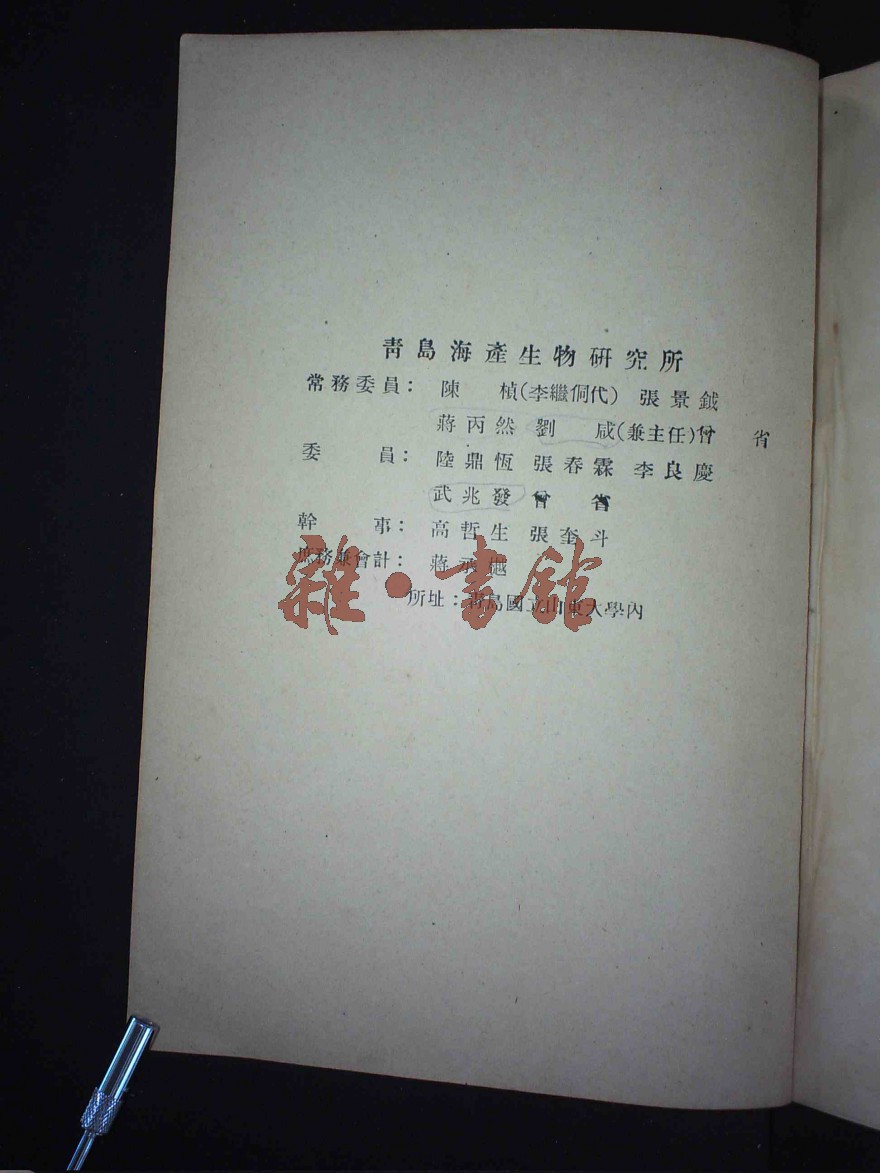 青島海產生物研究所
常務委員： 陳　楨(李繼侗代) 張景鉞
蔣丙然 劉　咸(兼主任)曾　省
委　員： 陸鼎恆 張春霖 李良慶
武兆發 曾　省
幹　事： 高哲生 張奎斗
庶務兼會計： 蔣丙樾
所址：青島國立山東大學內
雜・書館